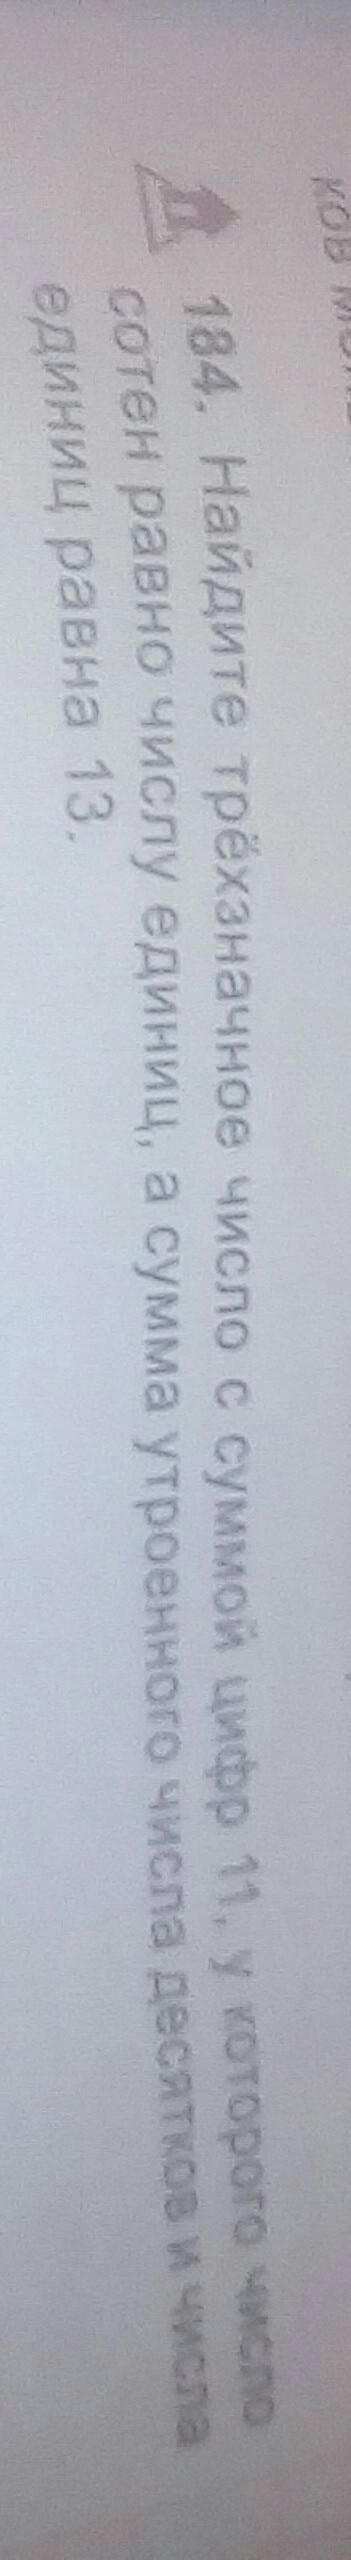 184. Найдите трёхзначное число с суммой цифр 11, у которого число
сотен равно числу единиц, а сумма утроенного числа десятков и числа
единиц равна 13.